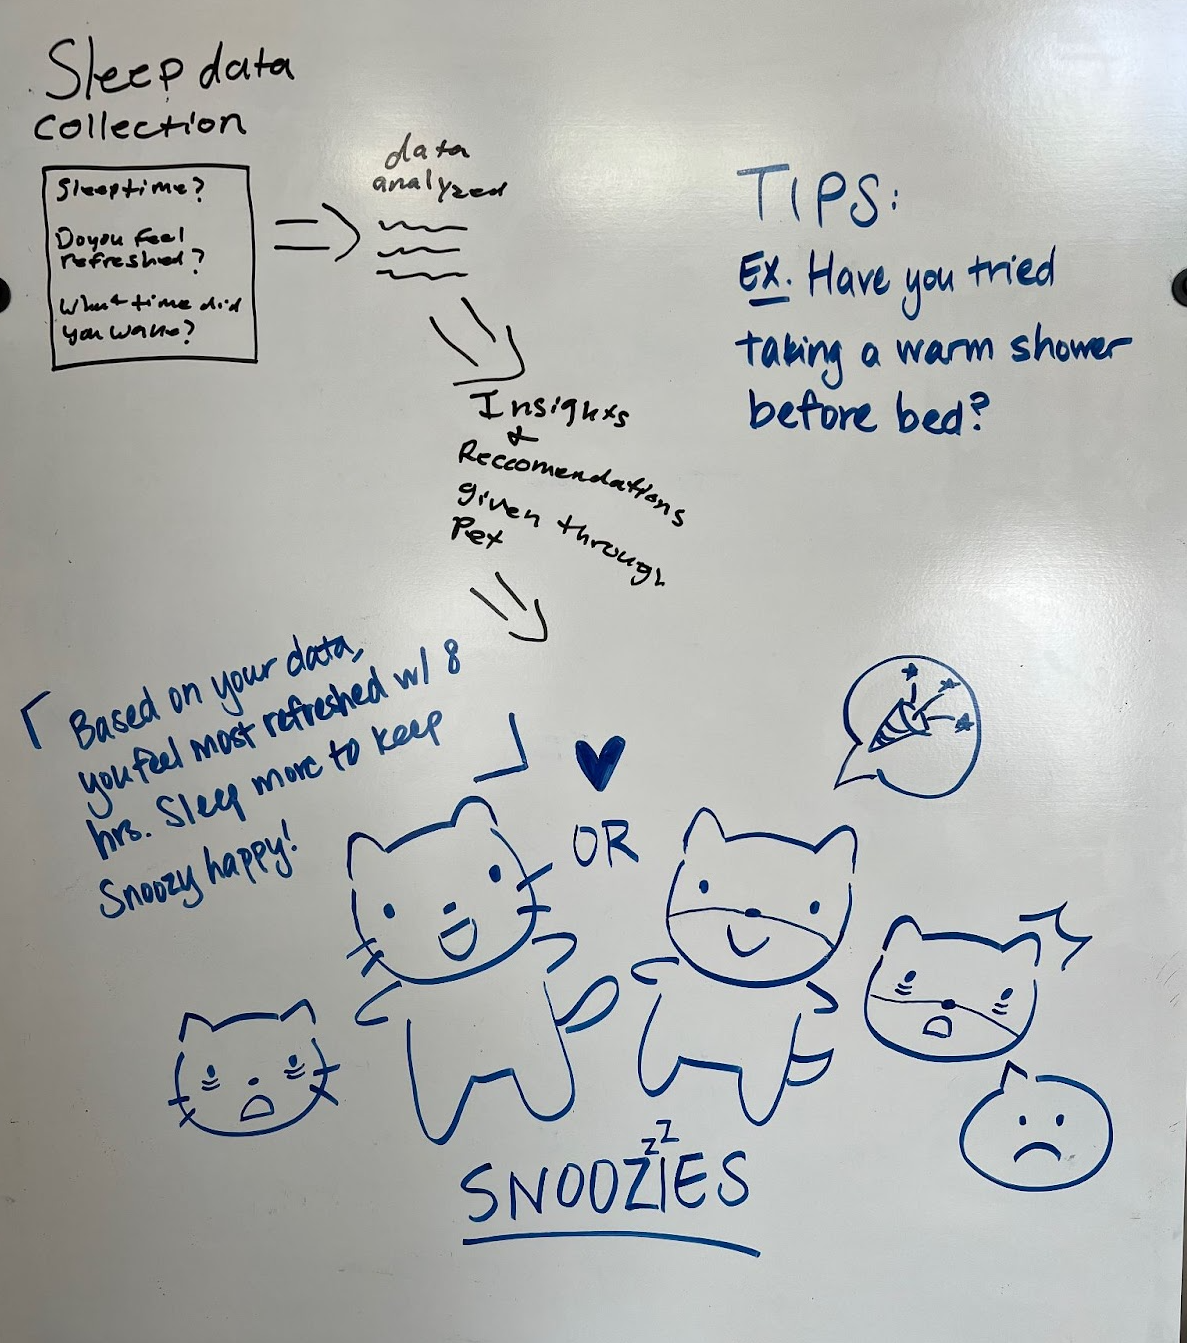 Sleep data
collection
Sleeptime?
Do you feel
refreshed?
What time did
you wake?
data
analyzed
Insights
+
Reccomendations
given through
Pet
TIPS:
Ex. Have you tried
taking a warm shower
before bed?
「Based on your data,
you feel most refreshed w/ 8
hrs. Sleep more to keep
Snoozy happy!」
OR
zz
SNOOZIES